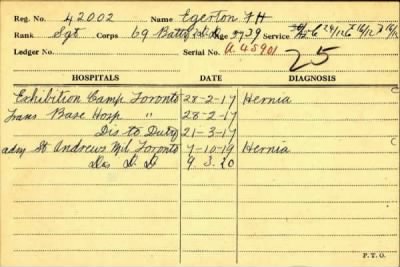 Reg. No. 42002 Name Egerton F H
Rank Sgt Corps 69 Batty Age 39 Service
Ledger No. Serial No. A 45901 25
HOSPITALS DATE DIAGNOSIS
Exhibition Camp Toronto 28-2-17 Hernia
Trans Base Hosp " 28-2-17
Dis to Duty 21-3-17
adm St Andrews Mil Toronto 7-10-19 Hernia
Dis 9.3.20
P.T.O.